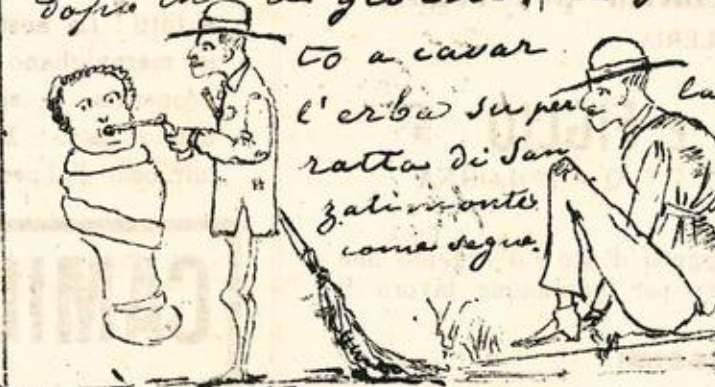 dopo
to a cavar
l'erba su per la
ratta di San
zalimonte
come segue.